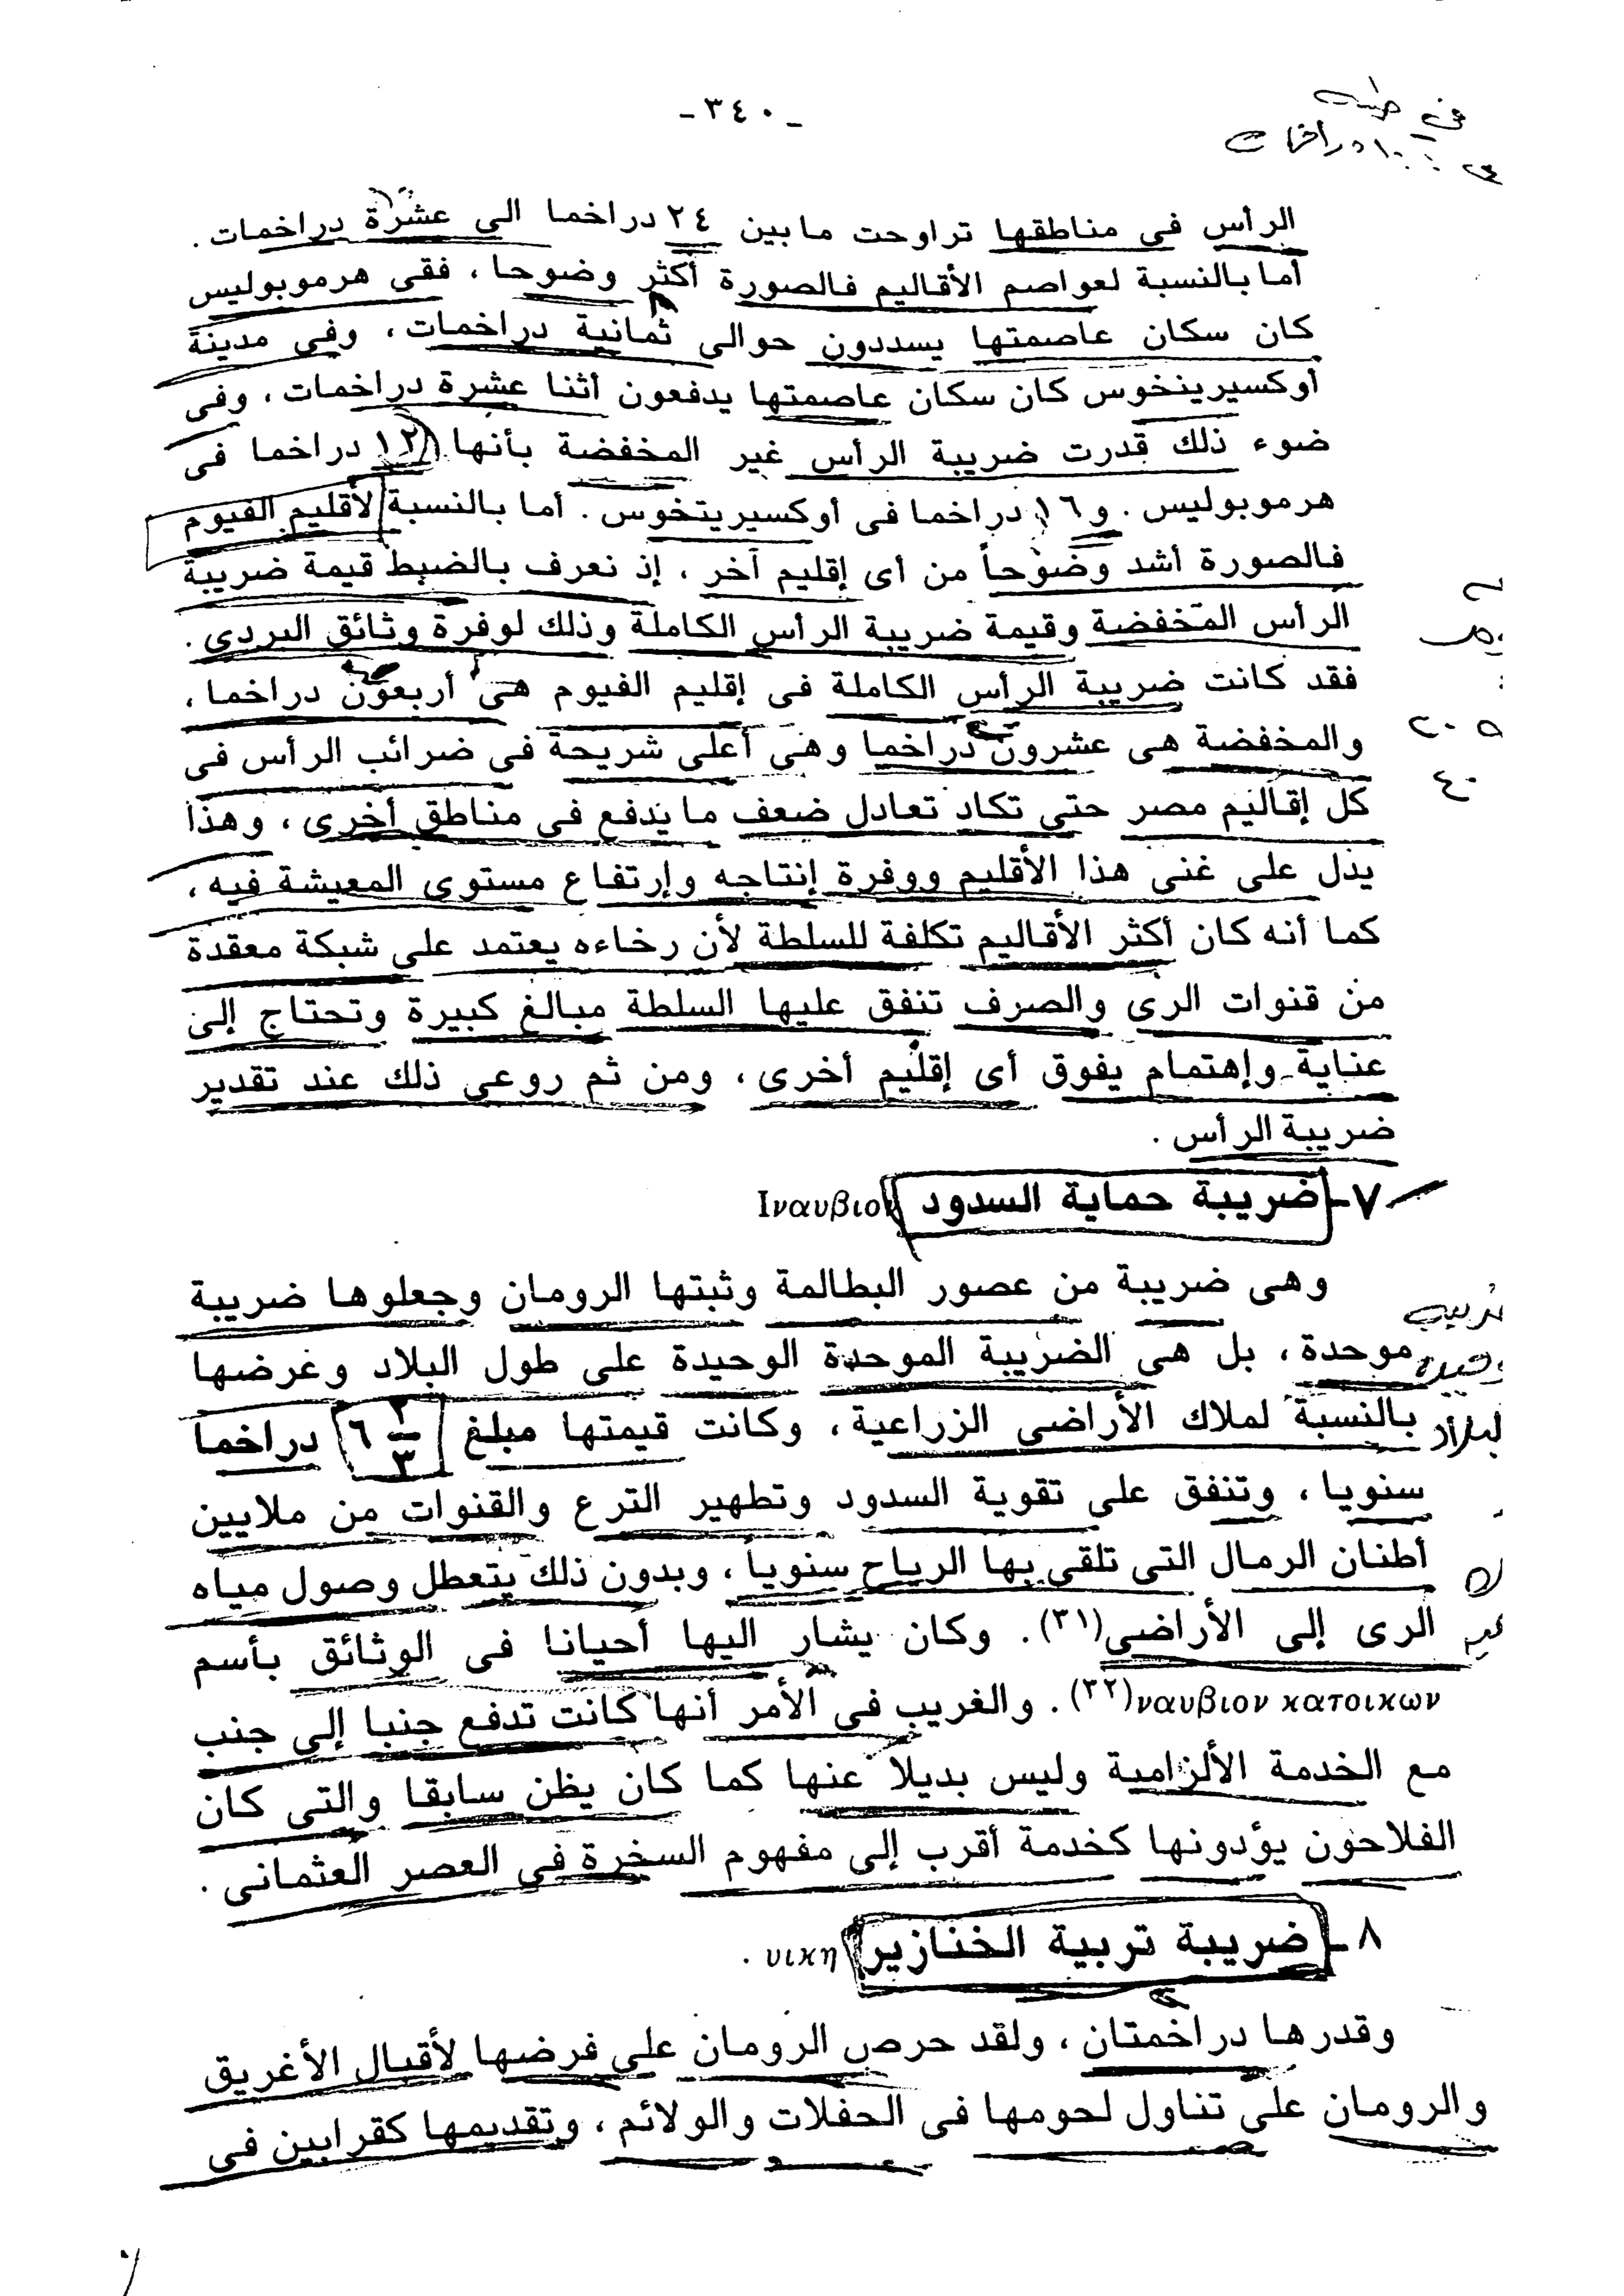 - ٣٤٠ -
الرأس فى مناطقها تراوحت مابين ٢٤ دراخما الى عشرة دراخمات .
أما بالنسبة لعواصم الأقاليم فالصورة أكثر وضوحا ، فقى هرموبوليس
كان سكان عاصمتها يسددون حوالى ثمانية دراخمات ، وفى مدينة
أوكسيرينخوس كان سكان عاصمتها يدفعون أثنا عشرة دراخمات ، وفى
ضوء ذلك قدرت ضريبة الرأس غير المخفضة بأنها ١٢ دراخما فى
هرموبوليس . و١٦ دراخما فى أوكسيريتخوس . أما بالنسبة لأقليم الفيوم
فالصورة أشد وضوحاً من أى إقليم آخر ، إذ نعرف بالضبط قيمة ضريبة
الرأس المخفضة وقيمة ضريبة الرأس الكاملة وذلك لوفرة وثائق البردى .
فقد كانت ضريبة الرأس الكاملة فى إقليم الفيوم هى أربعون دراخما ،
والمخفضة هى عشرون دراخما وهى أعلى شريحة فى ضرائب الرأس فى
كل إقاليم مصر حتى تكاد تعادل ضعف مايدفع فى مناطق أخرى ، وهذا
يدل على غنى هذا الأقليم ووفرة إنتاجه وإرتفاع مستوى المعيشة فيه ،
كما أنه كان أكثر الأقاليم تكلفة للسلطة لأن رخاءه يعتمد على شبكة معقدة
من قنوات الرى والصرف تنفق عليها السلطة مبالغ كبيرة وتحتاج إلى
عناية وإهتمام يفوق أى إقليم أخرى ، ومن ثم روعى ذلك عند تقدير
ضريبة الرأس .
٧- ضريبة حماية السدود Ιναυβιον
وهى ضريبة من عصور البطالمة وثبتها الرومان وجعلوها ضريبة
موحدة ، بل هى الضريبة الموحدة الوحيدة على طول البلاد وعرضها
بالنسبة لملاك الأراضى الزراعية ، وكانت قيمتها مبلغ ٦ ٢/٣ دراخما
سنويا ، وتنفق على تقوية السدود وتطهير الترع والقنوات من ملايين
أطنان الرمال التى تلقى بها الرياح سنوياً ، وبدون ذلك يتعطل وصول مياه
الرى إلى الأراضى(٣١) . وكان يشار اليها أحيانا فى الوثائق بأسم
ναυβιον κατοικων(٣٢) . والغريب فى الأمر أنها كانت تدفع جنبا إلى جنب
مع الخدمة الألزامية وليس بديلا عنها كما كان يظن سابقا والتى كان
الفلاحون يؤدونها كخدمة أقرب إلى مفهوم السخرة فى العصر العثمانى .
٨- ضريبة تربية الخنازير υικη .
وقدرها دراخمتان ، ولقد حرص الرومان على فرضها لأقبال الأغريق
والرومان على تناول لحومها فى الحفلات والولائم ، وتقديمها كقرابين فى
٢٠
٤٠